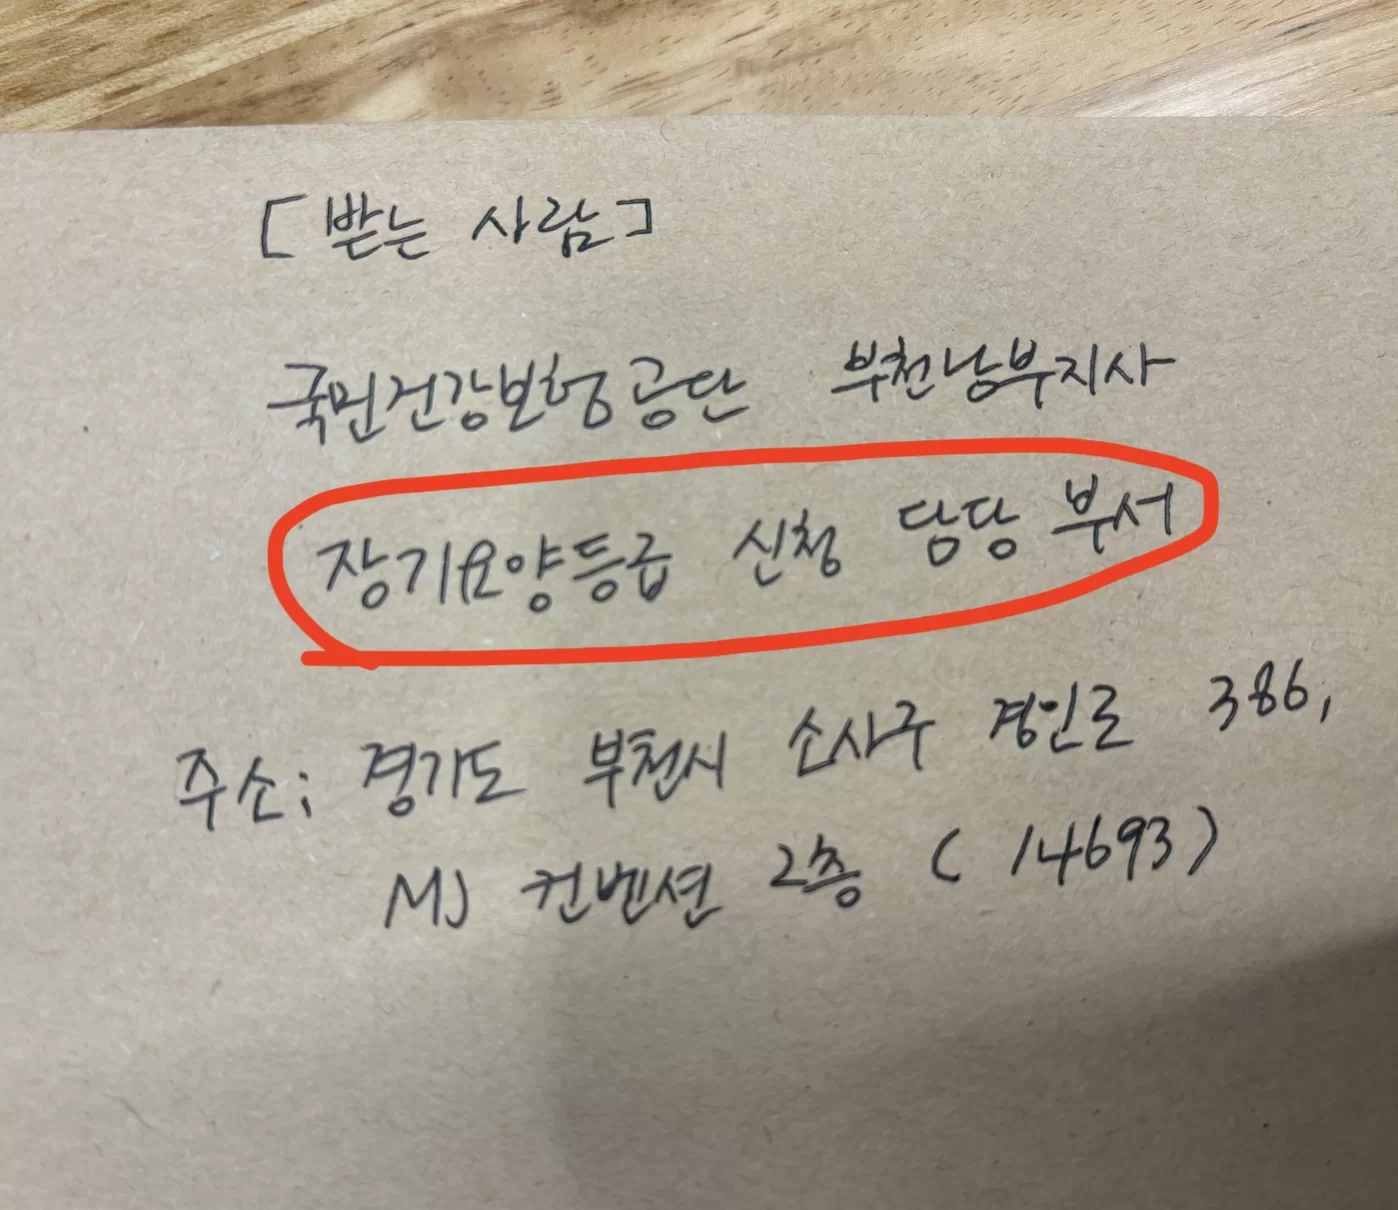 [받는 사람]
국민건강보험공단 부천남부지사
장기요양등급 신청 담당 부서
주소: 경기도 부천시 소사구 경인로 386,
MJ 컨벤션 2층 (14693)